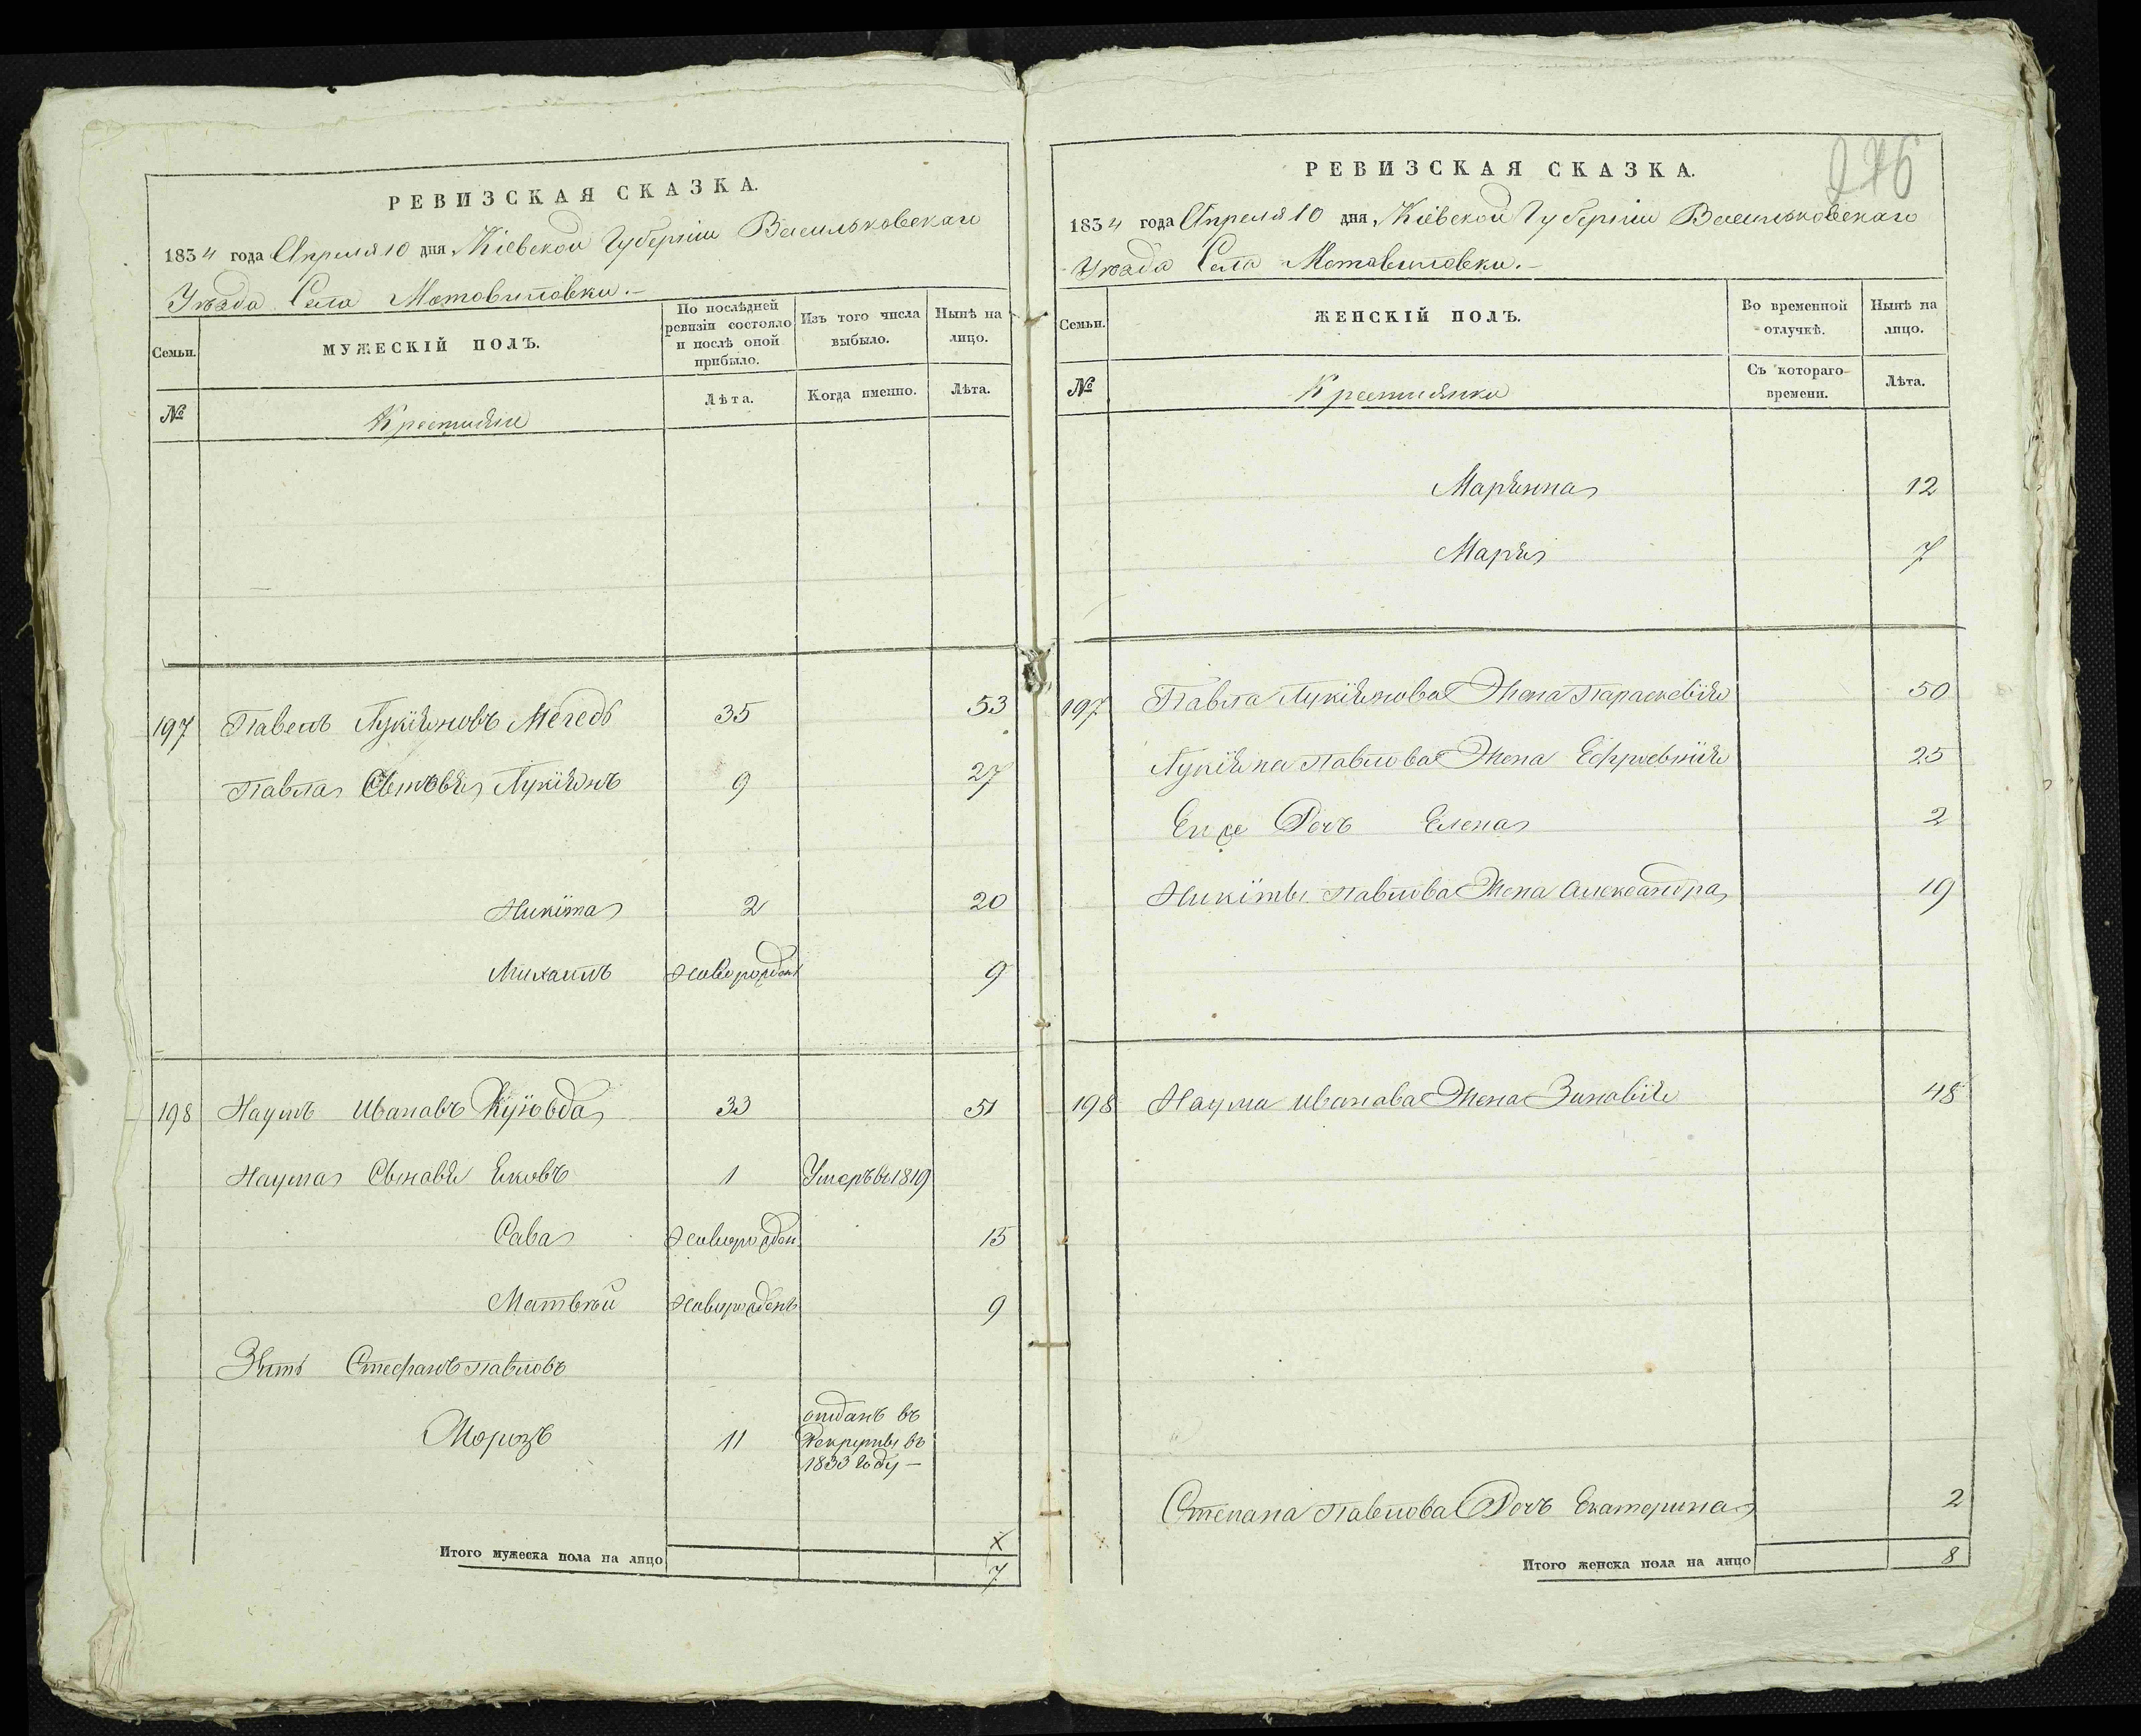 РЕВИЗСКАЯ СКАЗКА.
1834 года Апреля 10 дня, Кіевской Губерніи Васильковскаго
Уѣзда Села Мотовиловки.-
Семьи.
МУЖЕСКІЙ ПОЛЪ.
По послѣдней
ревизіи состояло
и послѣ оной
прибыло.
Изъ того числа
выбыло.
Нынѣ на
лицо.
№
Крестьяне
Лѣта.
Когда именно.
Лѣта.
197 Павелъ Лукіяновъ Мегедь 35 53
Павла Сыновья Лукіянъ 9 27
Никїта 2 20
Михаилъ новорожден 9
198 Наумъ Ивановъ Куйовда 33 51
Наума Сыновья Яковъ 1 Умеръ въ 1819
Сава новорожден. 15
Матвѣй новорожденъ 9
Зять Стефанъ Павловъ
Морозъ 11
отданъ въ
Рекруты въ
1833 Году —
х
Итого мужеска пола на лицо 7
276
РЕВИЗСКАЯ СКАЗКА.
1834 года Апреля 10 дня, Кіевской Губерніи Васильковскаго
Уѣзда Села Мотовиловки.-
Семьи.
ЖЕНСКІЙ ПОЛЪ.
Во временной
отлучкѣ.
Нынѣ на
лицо.
№
Крестьянки
Съ котораго
времени.
Лѣта.
Марянна 12
Марія 7
197 Павла Лукіянова Жена Параскевїя 50
Лукіяна Павлова Жена Ефросинїя 25
Ея же Дочь Елена 2
Никїты Павлова Жена Александра 19
198 Наума Иванова Жена Зиновїя 48
Степана Павлова Дочь Екатерина 2
Итого женска пола на лицо 8